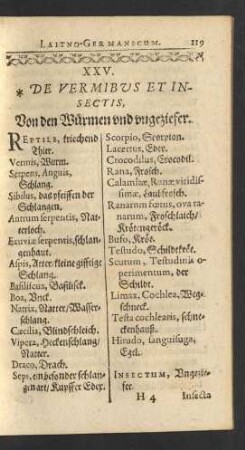 LATINO-GERMANICUM. 119
XXV.
* DE VERMIBUS ET IN-
SECTIS,
Von den Würmen vnd vngeziefer.
REPTILE, kriechend
Thier.
Vermis, Worm.
Serpens, Anguis,
Schlang.
Sibilus, das pfeiffen der
Schlangen.
Antrum serpentis, Nat-
terloch.
Exuviæ serpentis, schlan-
genhaut.
Aspis, Atter kleine gifftige
Schlang.
Basiliscus, Basilisck.
Boa, Beck.
Natrix, Natter/ Wasser-
schlang.
Cæcilia, Blindschleich.
Vipera, Heckenschlang/
Natter.
Draco, Drach.
Seps, ein besonder schlan-
gen art/ Kupffer Eder.
Scorpio, Scorpion.
Lacertus, Eder.
Crocodilus, Crocodil.
Rana, Frosch.
Calamitæ, Ranæ viridis-
simæ, Laubfrosch.
Ranarum fœtus, ova ra-
narum, Froschlaich/
Krötengeröck.
Bufo, Kröt.
Testudo, Schildkröte.
Scutum, Testudinis o-
perimentum, der
Schildt.
Limax, Cochlea, Weg-
schneck.
Testa cochleæ, schne-
ckenhauß.
Hirudo, sanguisuga,
Egel.
INSECTUM, Ungezie-
fer.
H 4 Insecta